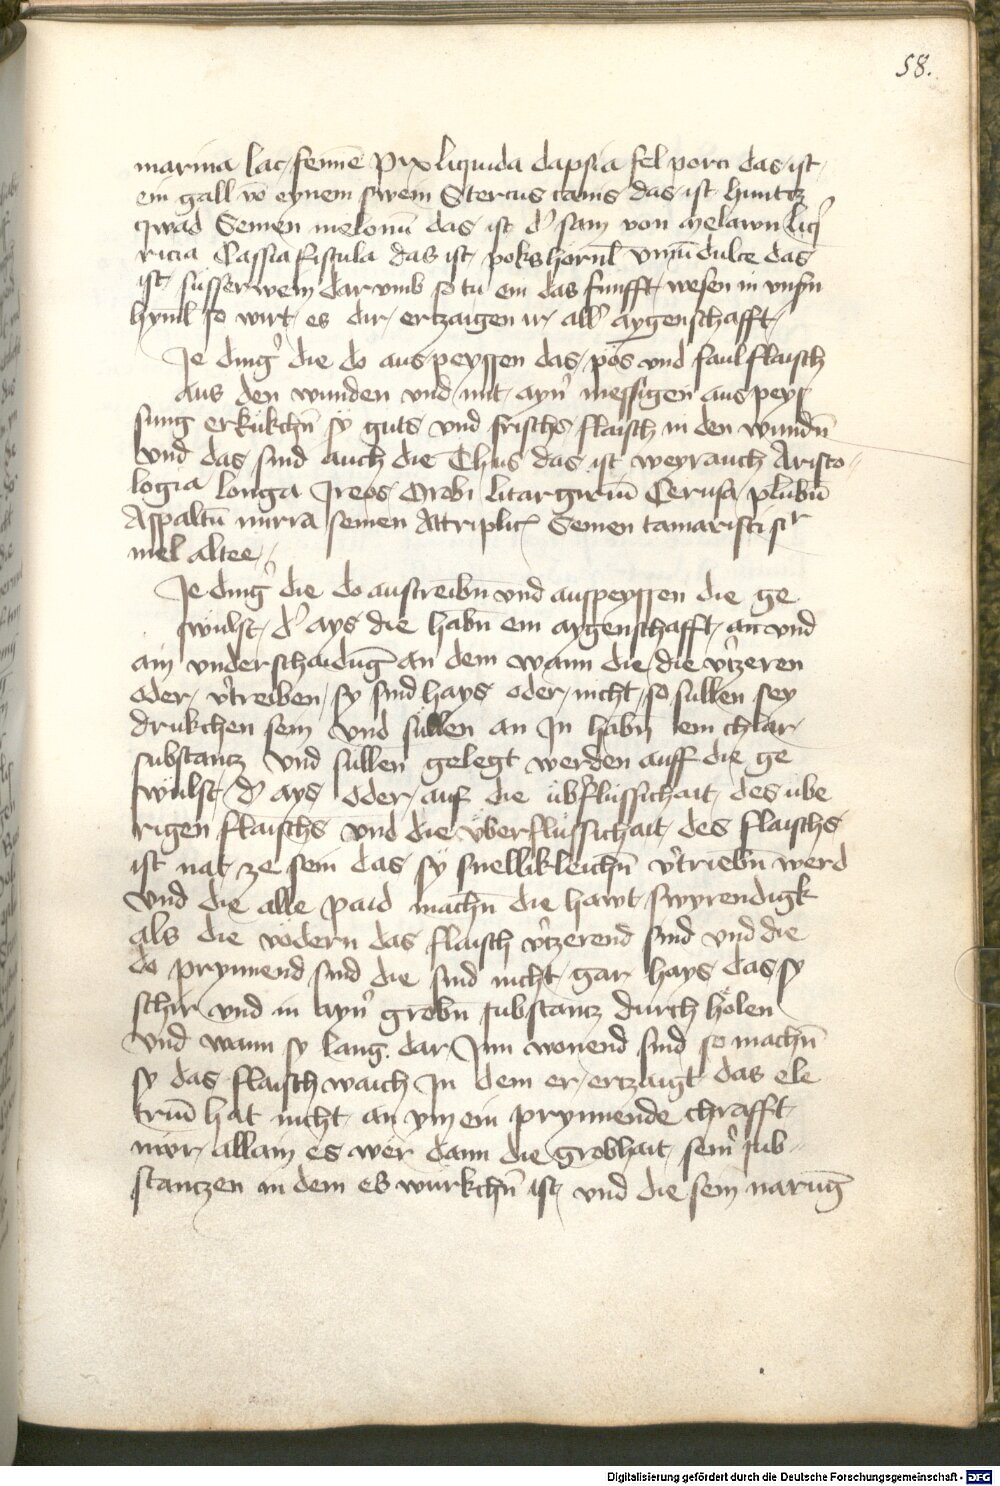 58.
marina lac femīe pix liquida dapsia fel porci das ist
ein gall vō eynem swein Stercus canis das ist huntcz
qwad Semen melonū das ist d' sam von melawn liq'
ricia Cassia fistula das ist pokshörnl vinū dulce das
ist süsser wein dar vmb so tu ein das funfft wesen in vnsn
hyml so wirt es dir ertzaigen ir all' aygenschafft
Je ding' die do aus peyssen das pös vnd faul flaisch
aus den wunden vnd mit ayn' messigen aus pey
sung erkükchn̄ sy guts vnd frischs flaisch in den wundn̄
vnd das sind auch die Thus das ist weyrauch Aristo
logia longa Jreos Orobi litargiriū Cerusa plūbū
Aspaltū mirra semen Attriplic Semen tamarisci
mel altee
Je ding' die do austreibn̄ vnd auspeyssen die ge
swulst d' ays die habn̄ ein aygenschafft an vnd
ain vnderschaidūg an dem wann die die v'tzeren
oder v'treiben sy sind hays oder nicht so sullen sey
drukchen sein vnd süllen an Jn habn̄ ein chlar
substancz vnd süllen gelegt werden auff die ge
swulst d' ays oder auf die üb'flüssichait des übe
rigen flaischs vnd die vberflüssichait des flaischs
ist nat ze sein das sy snellikleichn̄ v'triebn̄ werd
vnd die alle paid machn̄ die hawt swyrendigk
als die vodern das flaisch v'tzerend sind vnd die
do prynnend sind die sind nicht gar hays das sy
schir vnd in ayn' grobn̄ substancz durch hölen
vnd wann sy lang dar Jnn wonend sind so machn̄
sy das flaisch waich Jn dem er ertzaigt das ele
triū hat nicht an ym ein prynnende chrafft
nvr allain es wer dann die grobhait sein' sub
stantzen in dem es würkchn̄ ist vnd die sein narūg
Digitalisierung gefördert durch die Deutsche Forschungsgemeinschaft - DFG